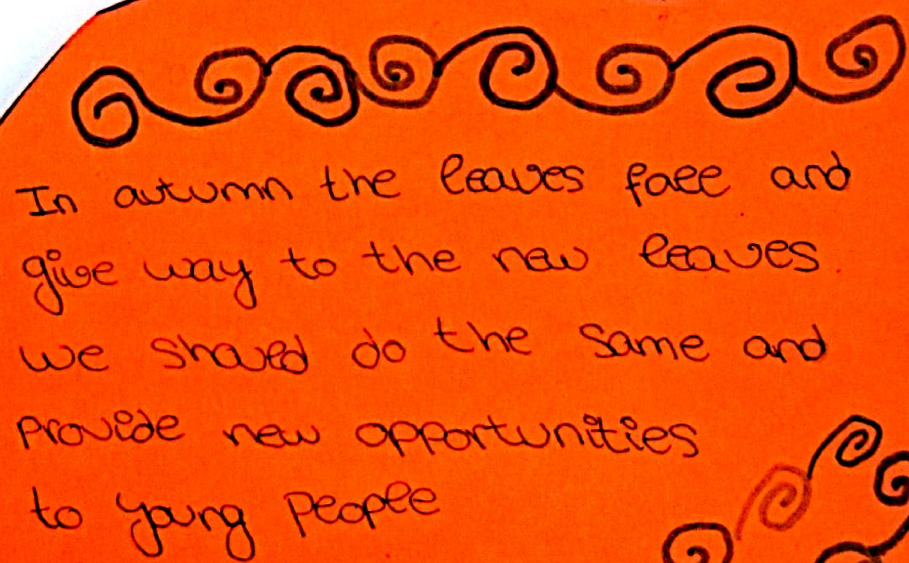 In autumn the leaves fall and
give way to the new leaves.
we should do the same and
provide new opportunities
to young people